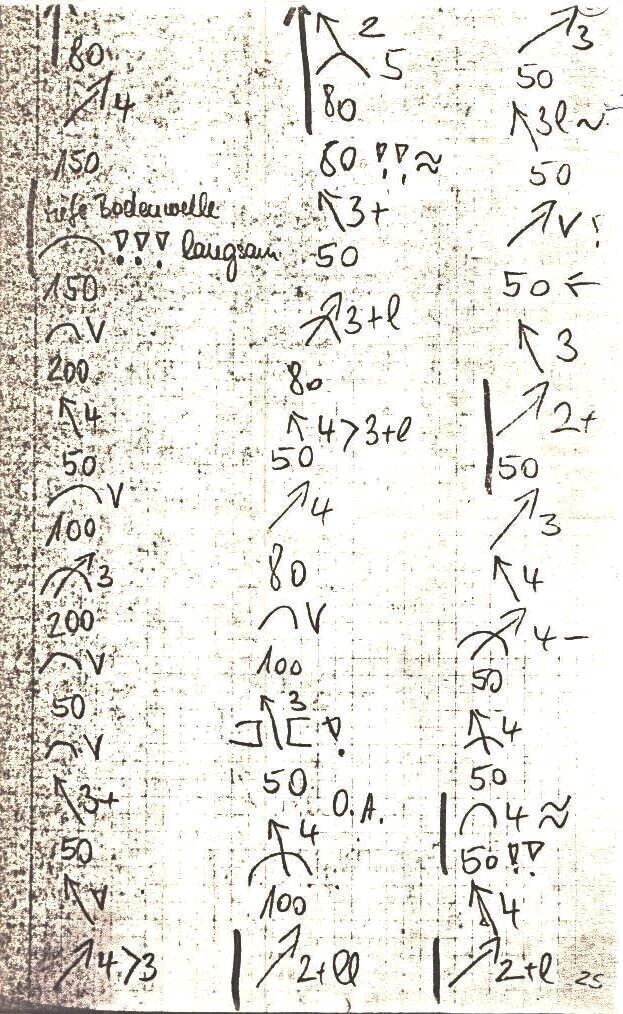 80
4
150
tiefe Bodenwelle
!!! langsam
150
V
200
4
50
V
100
3
200
V
50
V
3+
50
V
4>3
2
5
80
80 !! ≈
3+
50
3+l
80
4>3+l
50
4
80
V
100
3
!
50
O.A.
4
100
2+ll
3
50
3l ~
50
V!
50 ←
3
2+
50
3
4
4–
50
4
50
4 ≈
50 !!
4
2+l
25